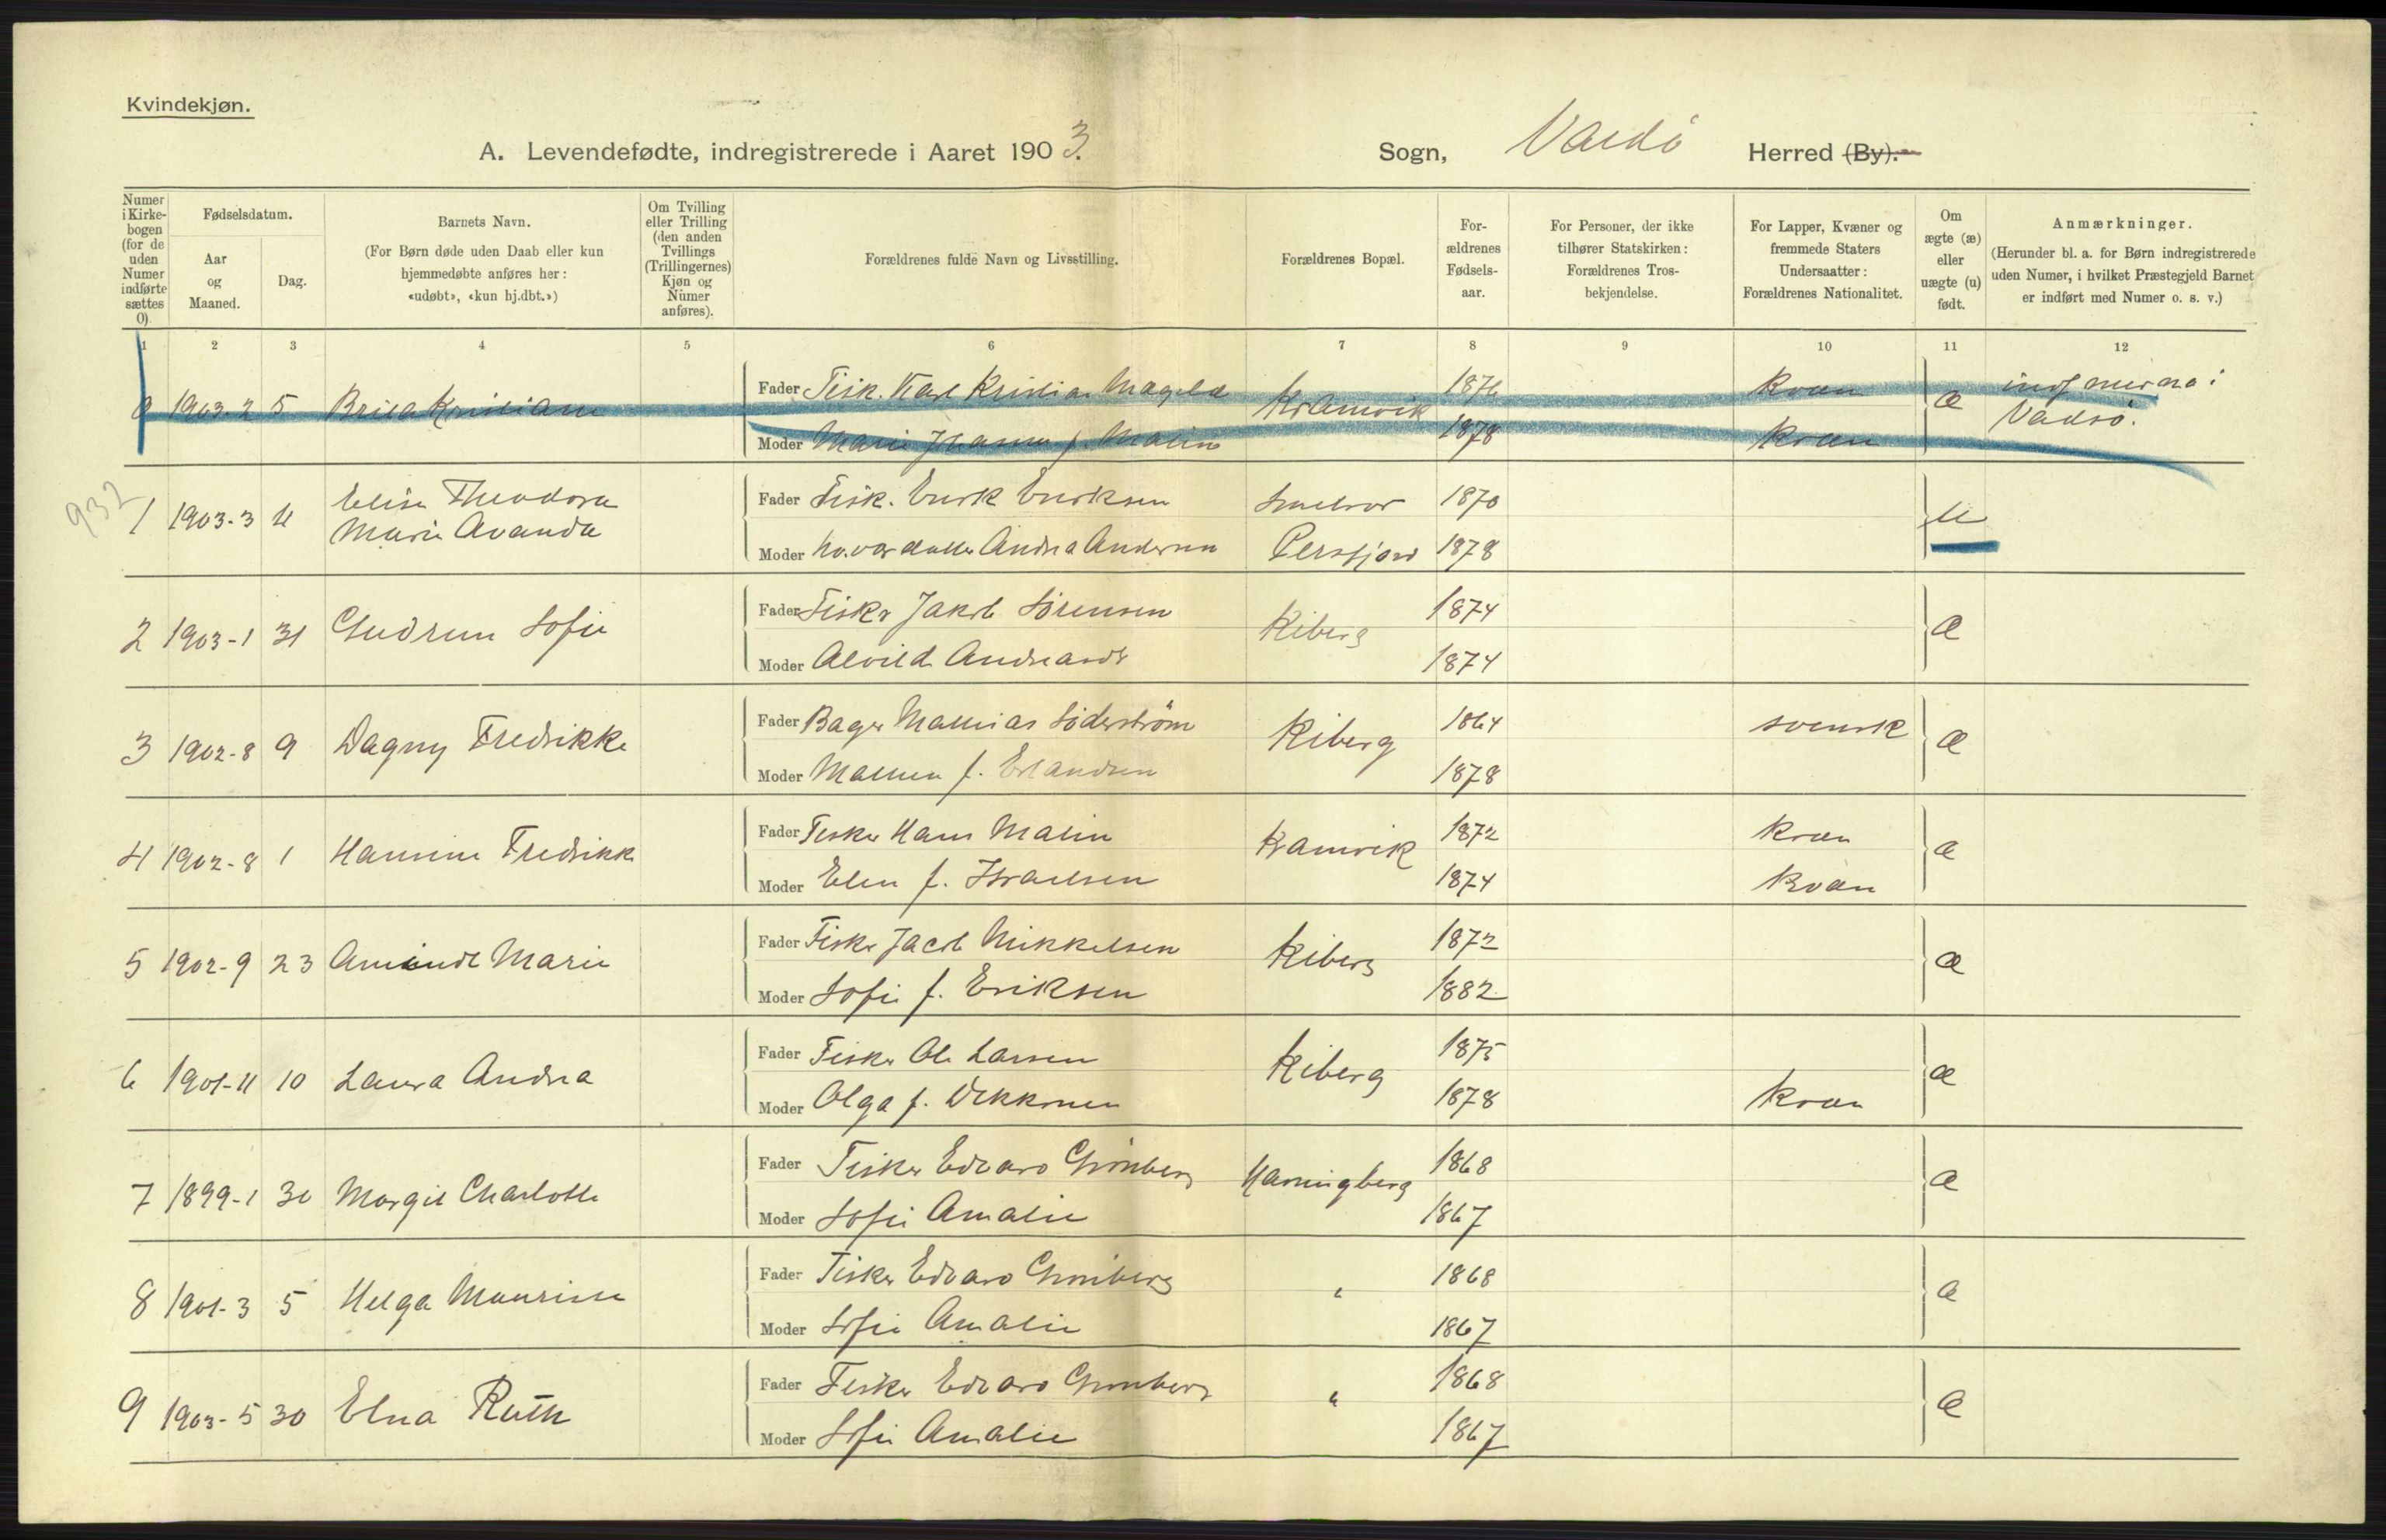 Kvindekjøn.
A. Levendefødte, indregistrerede i Aaret 1903. Sogn, Vardö Herred (By).
Numer i Kirkebogen (for de uden Numer indførte sættes 0).
Fødselsdatum.
Aar og Maaned.
Dag.
Barnets Navn.
(For Børn døde uden Daab eller kun hjemmedøbte anføres her: «udøbt», «kun hj.dbt.»)
Om Tvilling eller Trilling (den anden Tvillings (Trillingernes) Kjøn og Numer anføres).
Forældrenes fulde Navn og Livsstilling.
Forældrenes Bopæl.
Forældrenes Fødselsaar.
For Personer, der ikke tilhører Statskirken: Forældrenes Trosbekjendelse.
For Lapper, Kvæner og fremmede Staters Undersaatter: Forældrenes Nationalitet.
Om ægte (æ) eller uægte (u) født.
Anmærkninger.
(Herunder bl. a. for Børn indregistrerede uden Numer, i hvilket Præstegjeld Barnet er indført med Numer o. s. v.)
1 2 3 4 5 6 7 8 9 10 11 12
0 1903-2 5 Kristiane Fader Fisk. Karl Kristian Kramvik 1876 Kvæn æ
Moder Marie f. Malin 1878 Kvæn Vadsö.
932
1 1903-3 4 Elise Theodora Fader Fisk. Erik Eriksen Smelror 1870 u
Marie Avanda Moder Andrea Andersen Persfjord 1878
2 1903-1 31 Gudrun Sofie Fader Fisker Jakob Sørensen Kiberg 1874 æ
Moder Alvild 1874
3 1902-8 9 Dagny Fredrikke Fader Bager Mathias Söderström Kiberg 1864 svensk æ
Moder f. Erlandsen 1878
4 1902-8 1 Hansine Fredrikke Fader Fisker Hans Malin Kramvik 1872 Kvæn æ
Moder Elen f. Israelsen 1874 Kvæn
5 1902-9 23 Marie Fader Fisker Jacob Mikkelsen Kiberg 1872 æ
Moder Sofie f. Eriksen 1882
6 1901-11 10 Laura Andrea Fader Fisker Ole Larsen Kiberg 1875 æ
Moder Olga f. 1878 Kvæn
7 1899-1 30 Margit Charlotte Fader Fisker Edvard Grönberg Havningberg 1868 æ
Moder Sofie Amalie 1867
8 1901-3 5 Helga Fader Fisker Edvard Grönberg " 1868 æ
Moder Sofie Amalie 1867
9 1903-5 30 Elna Ruth Fader Fisker Edvard Grönberg " 1868 æ
Moder Sofie Amalie 1867